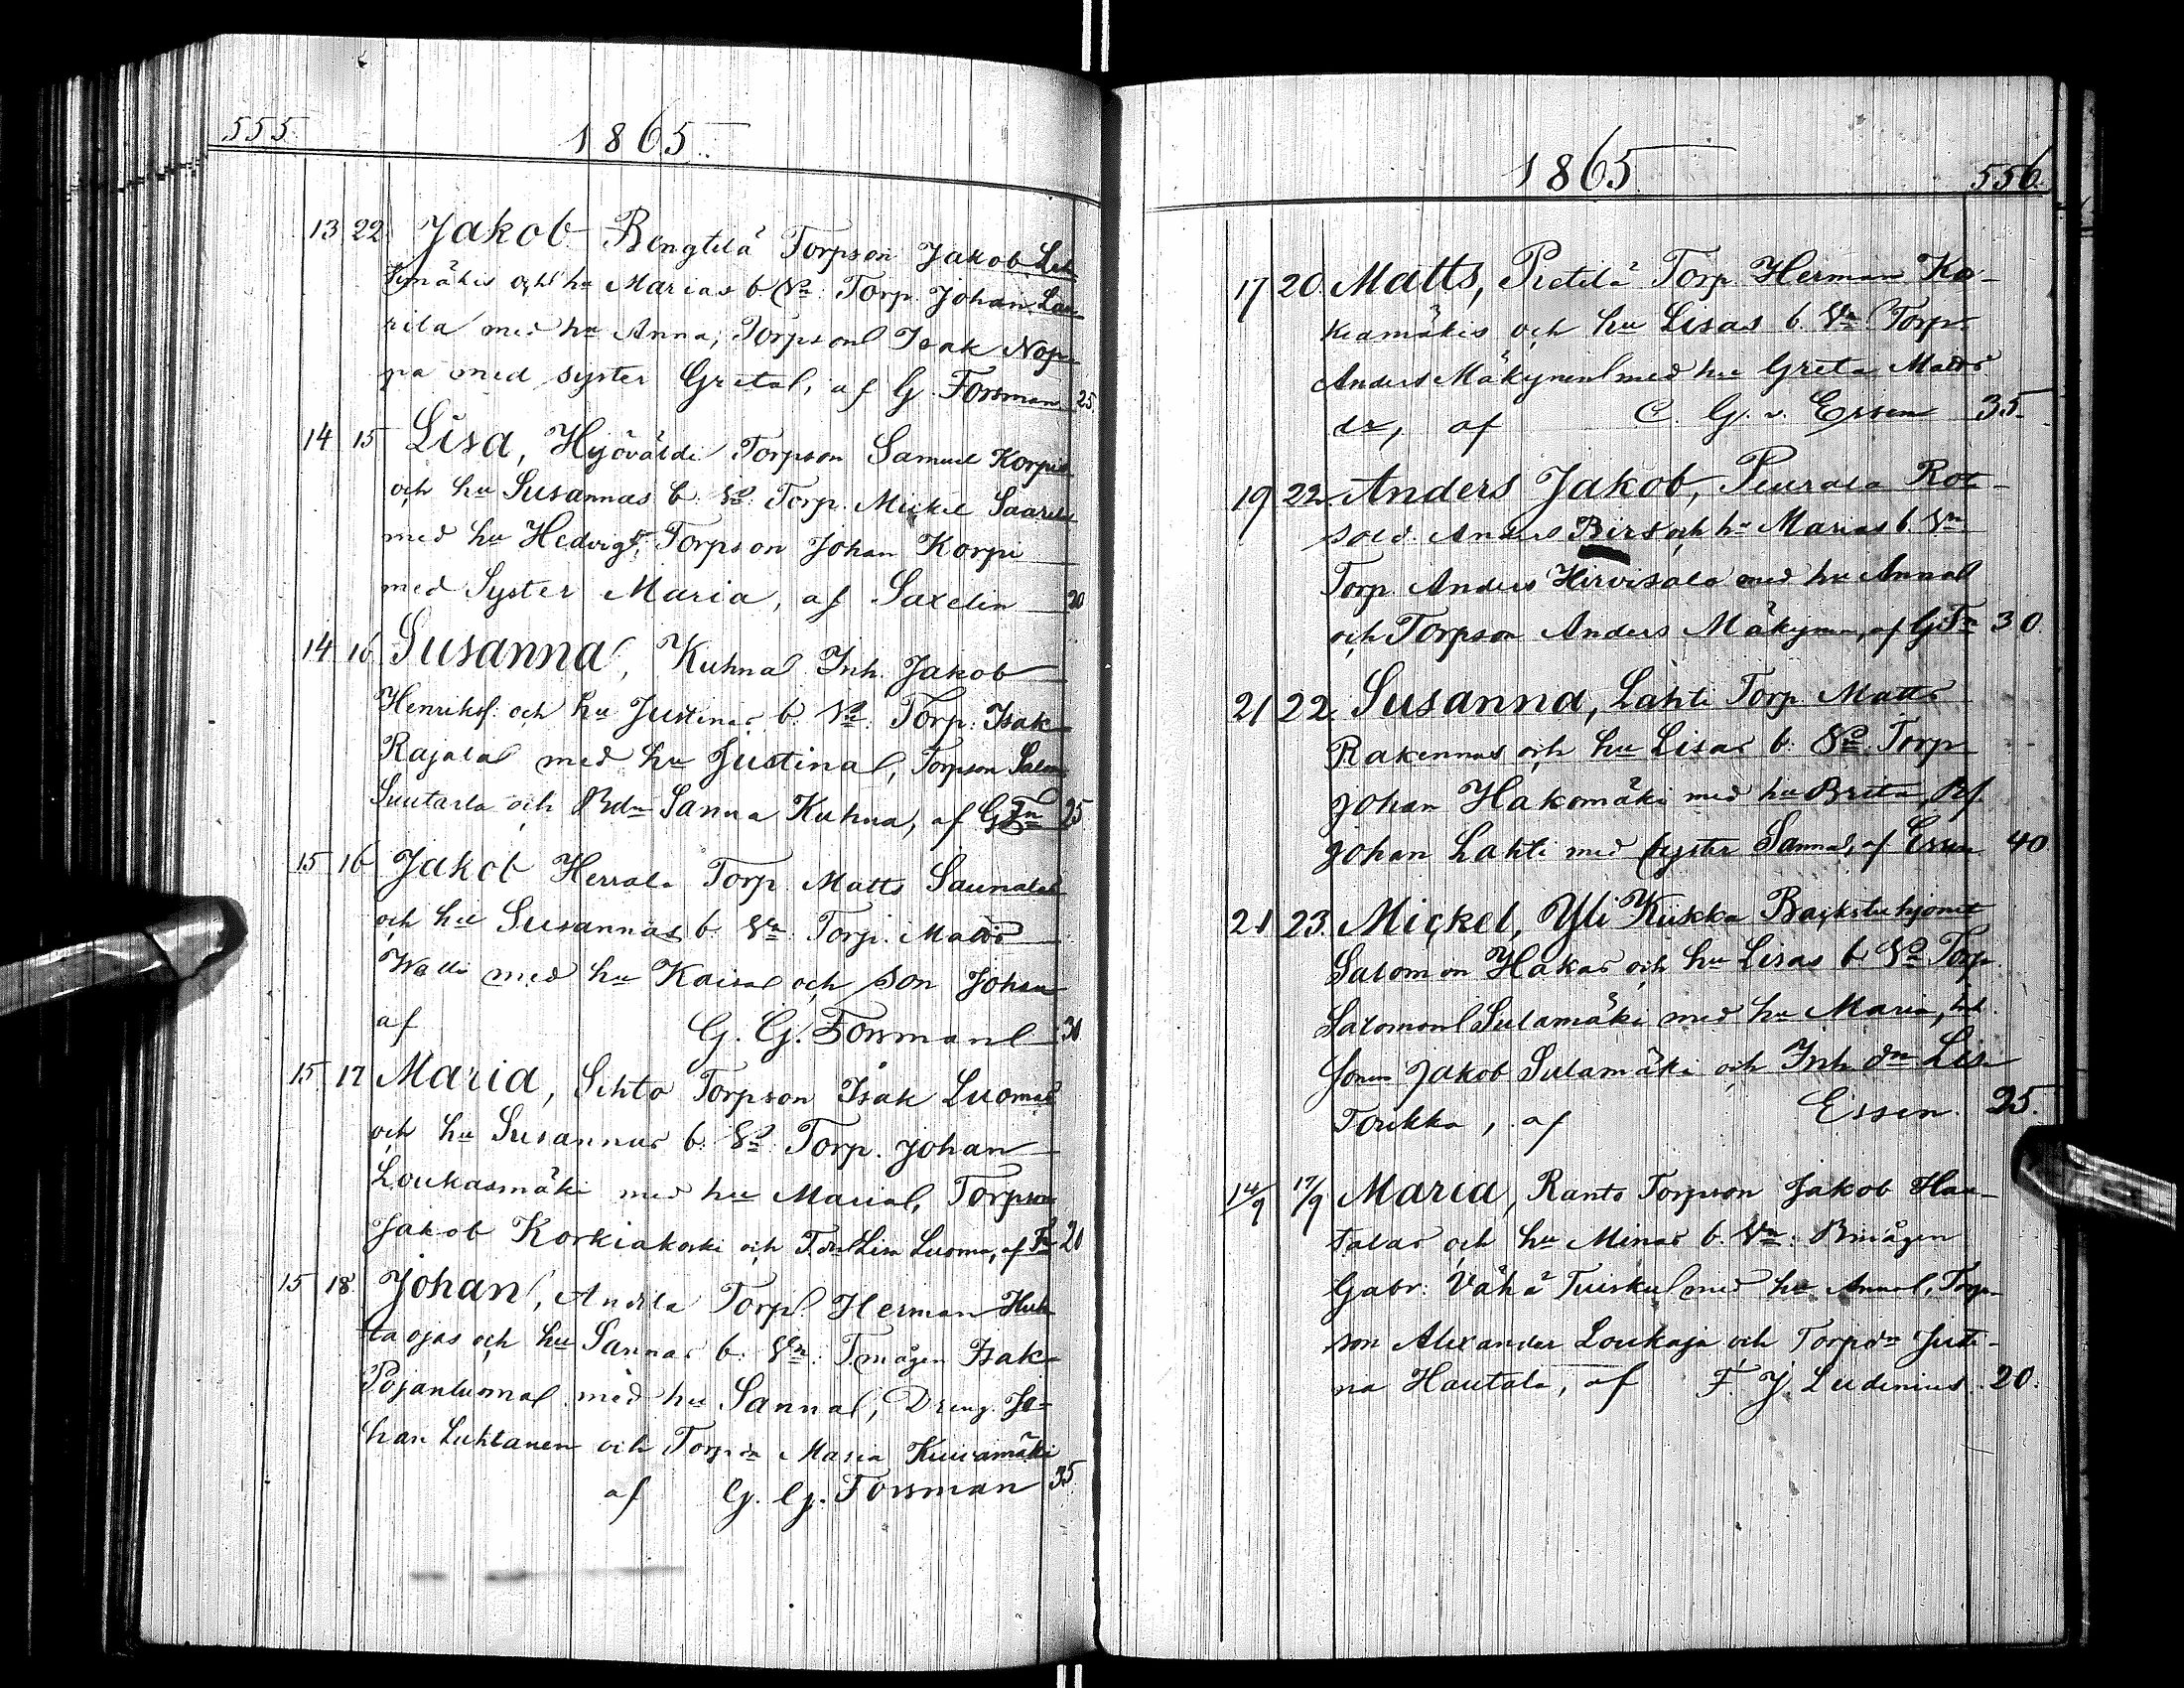 555. 1865.
13 22 Jakob Bengtilä Torpson Jakob Leh
timäkis och hu Marias b. Vn: Torp. Johan Lau
rila med hu Anna, Torpson Isak Nop-
pa med syster Greta, af G. Forsman 25.
14 15 Lisa, Hyövälde Torpson Samuel Korpis
och hu Susannas b. Vn: Torp. Mickel Saarela
med hu Hedvig, Torpson Johan Korpi
med Syster Maria, af Saxelin 20
14 16 Susanna, Kuhna Inh. Jakob
Henriks. och hu Justinas b. Vn: Torp: Isak
Rajala med hu Justina, Torpson Salom
Suutarla och Bdr Sanna Kuhna, af G Fn 25
15 16 Jakob Herrala Torp. Matts Saunalas
och hu Susannas b. Vn: Torp. Matts
Walli med hu Kaisa och son Johan
af G. G. Forsman 30
15 17 Maria, Sihto Torpson Isak Luomas
och hu Susannas b. Vn: Torp. Johan
Loukasmäki med hu Maria, Torpson
Jakob Korkiakoski och T.dr Lisa Luoma, af Fn 20
15 18 Johan, Andila Torp. Herman Huh
taojas och hu Sannas b. Vn: Tmågen Isak
Pojanluoma med hu Sanna, Dreng. Jo-
han Luhtanen och Torpdr Maria Kuuamäki
af G. G. Forsman 35.
1865 556.
17 20. Matts, Pietilä Torp. Herman Kor-
kiamäkis och hu Lisas b. Vn: Torp.
Anders Mäkynen med hu Greta Matts
dr, af C. G. v. Essen 35.
19 22. Anders Jakob, Peurala Rot-
sold. Anders Birs och hu Marias b. Vn
Torp. Anders Hirvisala med hu Anna
och Torpson Anders Mäkynen, af G Fn 30.
21 22. Susanna, Lahti Torp. Matts
Rakennus och hu Lisas b. Vn: Torp
Johan Hakomäki med hu Brita,
Johan Lahti med syster Sanna, af Essen 40
21 23. Mickel, Yli Kiikka Backstuhjonet
Salomon Hakas och hu Lisas b. Vn: Torp.
Salomon Sulamäki med hu Maria,
Jakob Sulamäki och Inh dr Lisa
Torikka, af Essen. 25.
14/9 17/9 Maria, Ranto Torpson Jakob Hau-
talas och hu Minas b. Vn: Bmågen
Gabr: Vähä Tuisku med hu Anna, Torp-
son Alexander Loukaja och Torpdr Justi-
na Hautala, af F. J. Ludenius. 20.